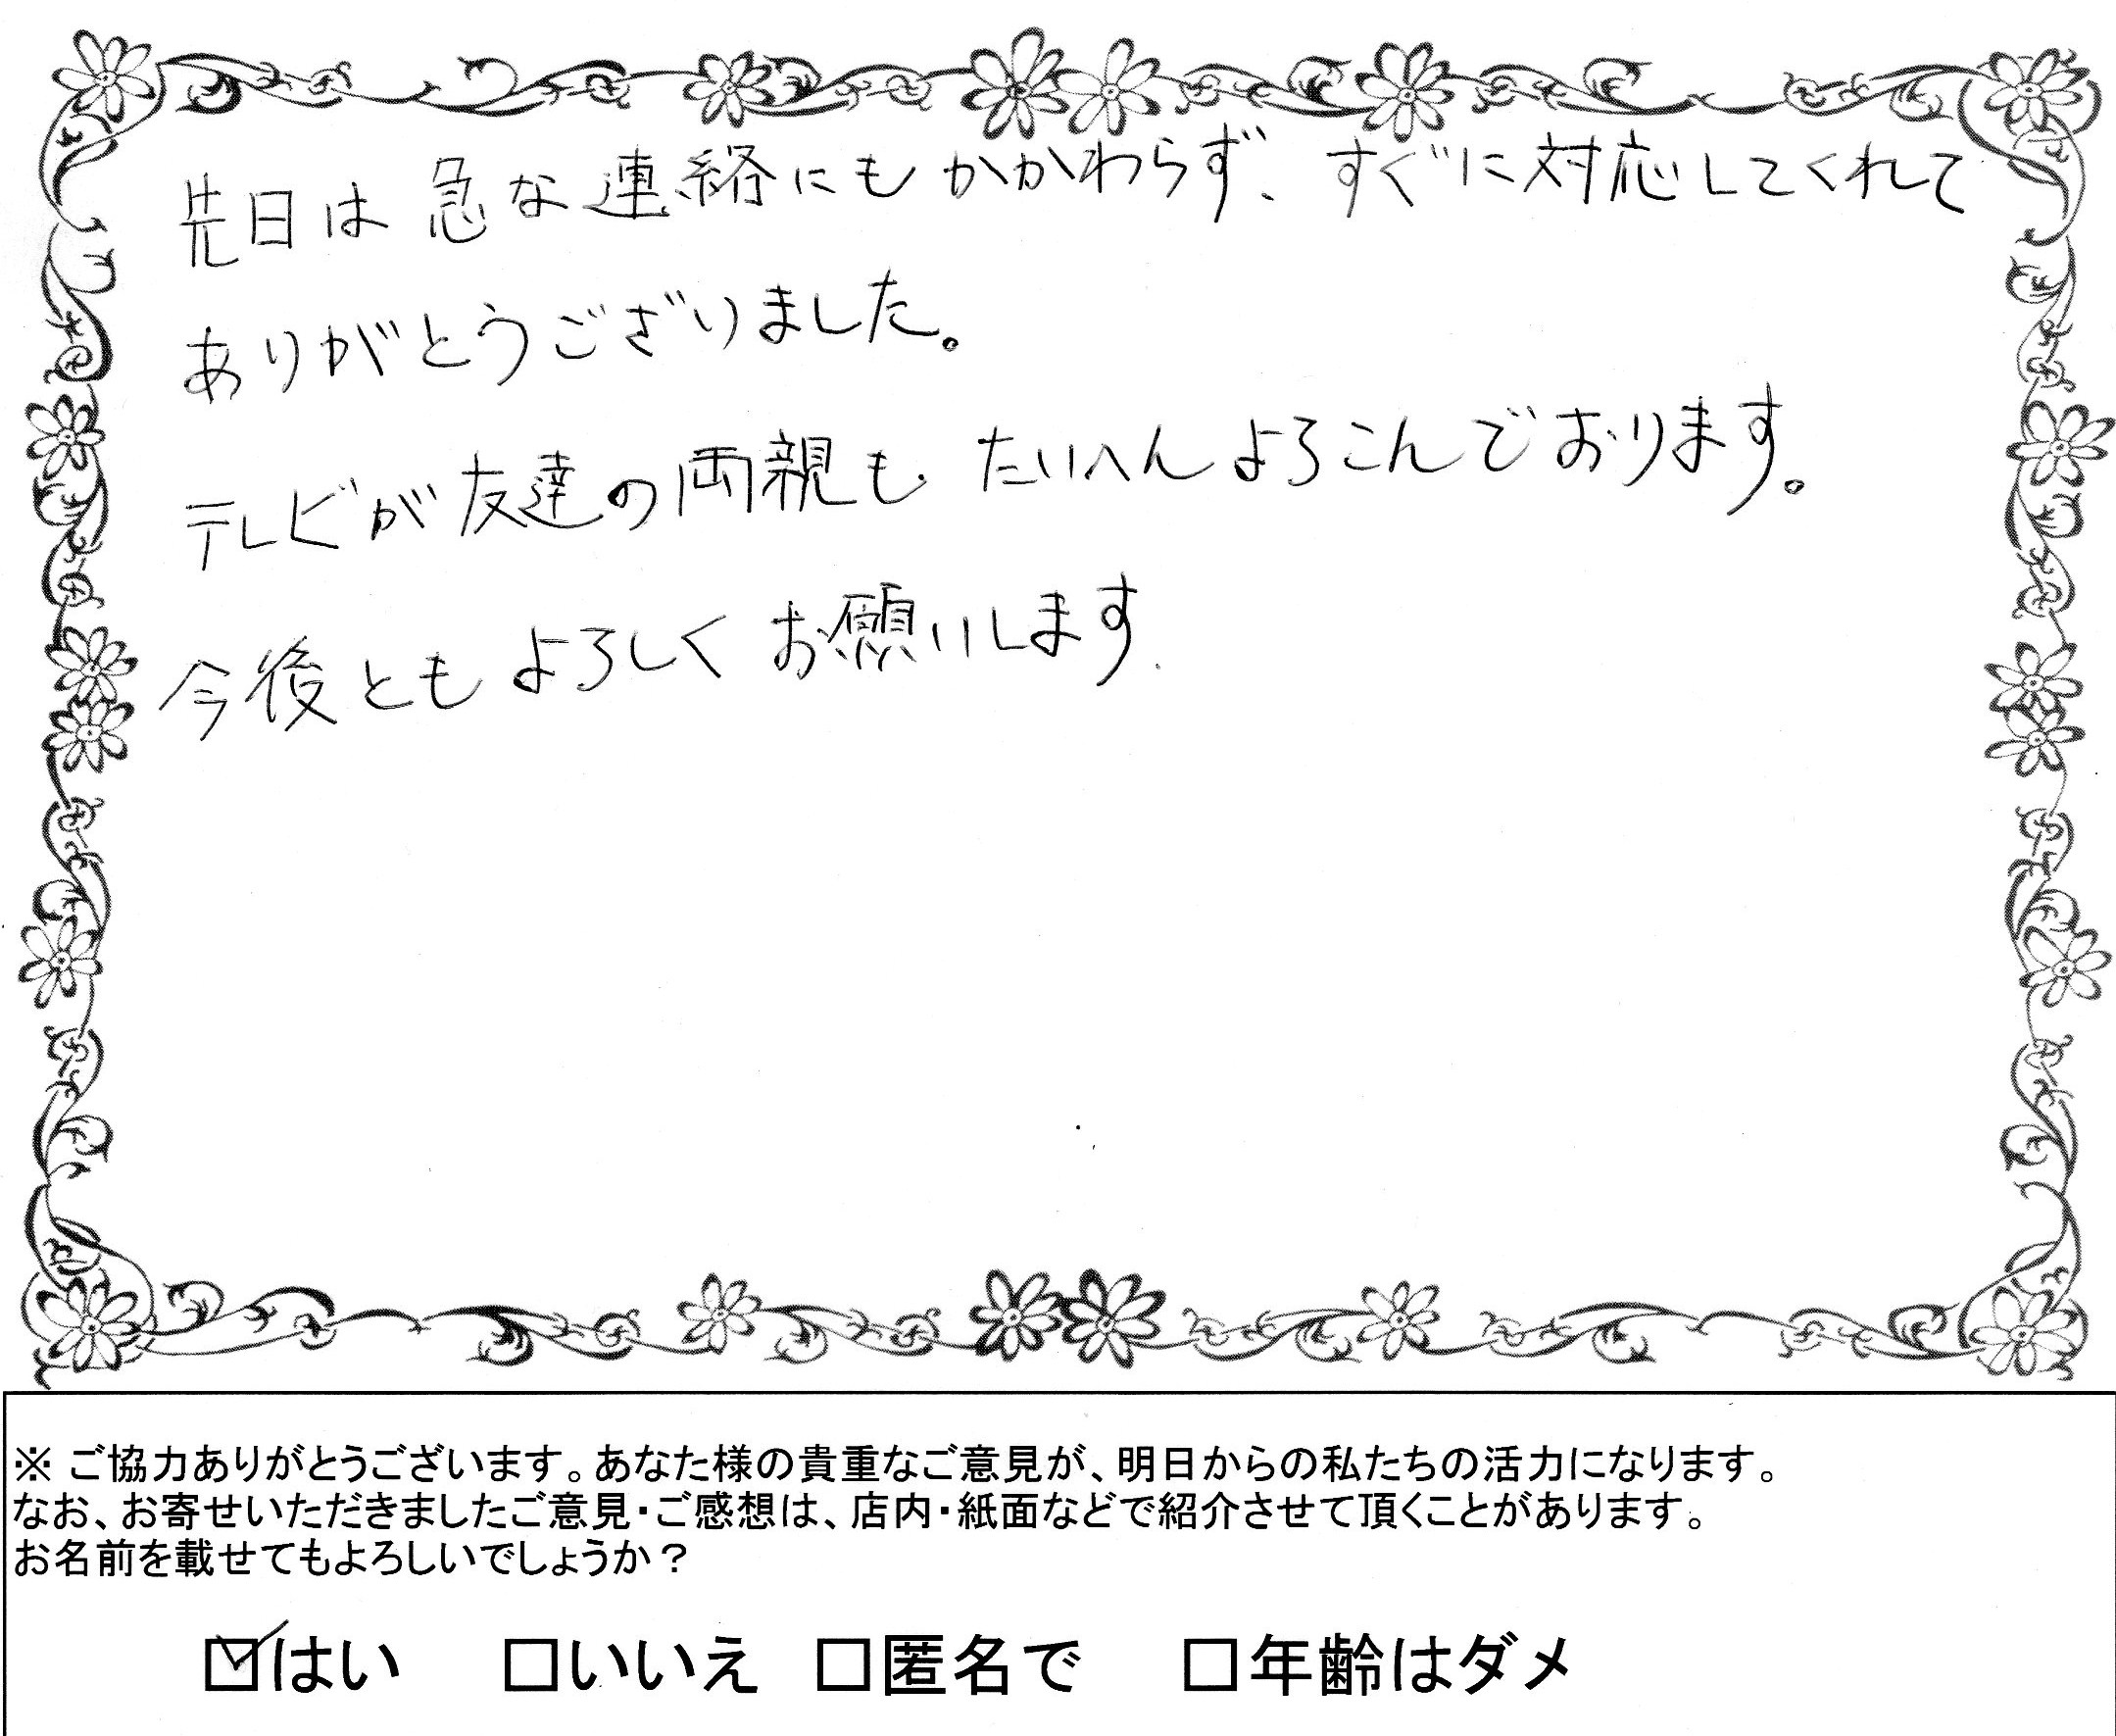 先日は急な連絡にもかかわらず、すぐに対応してくれて
ありがとうございました。
テレビが友達の両親も たいへんよろこんでおります。
今後ともよろしくお願いします.
※ ご協力ありがとうございます。あなた様の貴重なご意見が、明日からの私たちの活力になります。
なお、お寄せいただきましたご意見・ご感想は、店内・紙面などで紹介させて頂くことがあります。
お名前を載せてもよろしいでしょうか？
☑はい □いいえ □匿名で □年齢はダメ